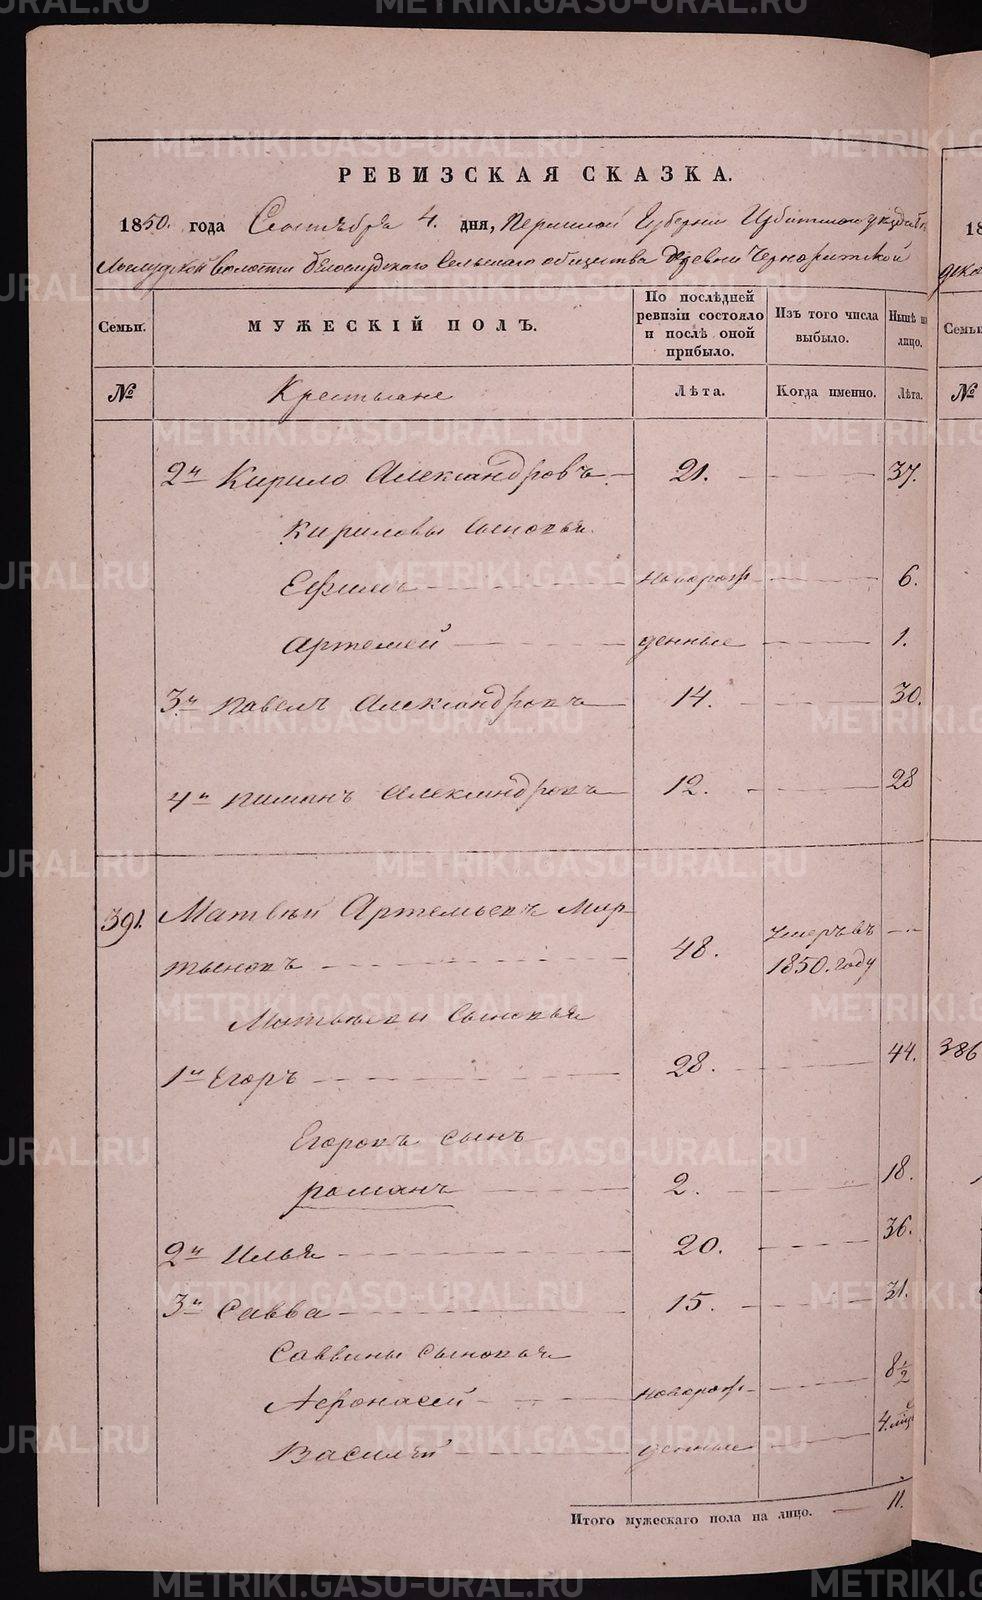 РЕВИЗСКАЯ СКАЗКА.
1850. года Сентября 4. дня, Пермской Губернии Ирбитского уезда Бѣ
лослудской волости Бѣлослудского Сельскаго общества Деревни Черноритской
Семьи. МУЖЕСКІЙ ПОЛЪ. По послѣдней ревизіи состояло и послѣ оной прибыло. Изъ того числа выбыло. Нынѣ на лицо.
№ Крестьяне Лѣта. Когда именно. Лѣта.
2й Кирило Александровъ 21. 37.
Кириловы сыновья
Ефимъ новорож 6.
Артемей денные 1.
3й Павелъ Александровъ 14. 30.
4й Пиманъ Александровъ 12. 28
391. Матвѣй Артемьевъ Мар
тыновъ 48. Умеръ въ 1850. году
Матвѣевы сыновья
1й Егоръ 28. 44.
Егоровъ сынъ
Романъ 2. 18.
2й Илья 20. 36.
3й Савва 15. 31.
Саввины сыновья
Афонасей новорож 8½
Василей денные 4. мѣс
Итого мужескаго пола на лицо. 11.
18
дка
Семьи
№
386
METRIKI.GASO-URAL.RU